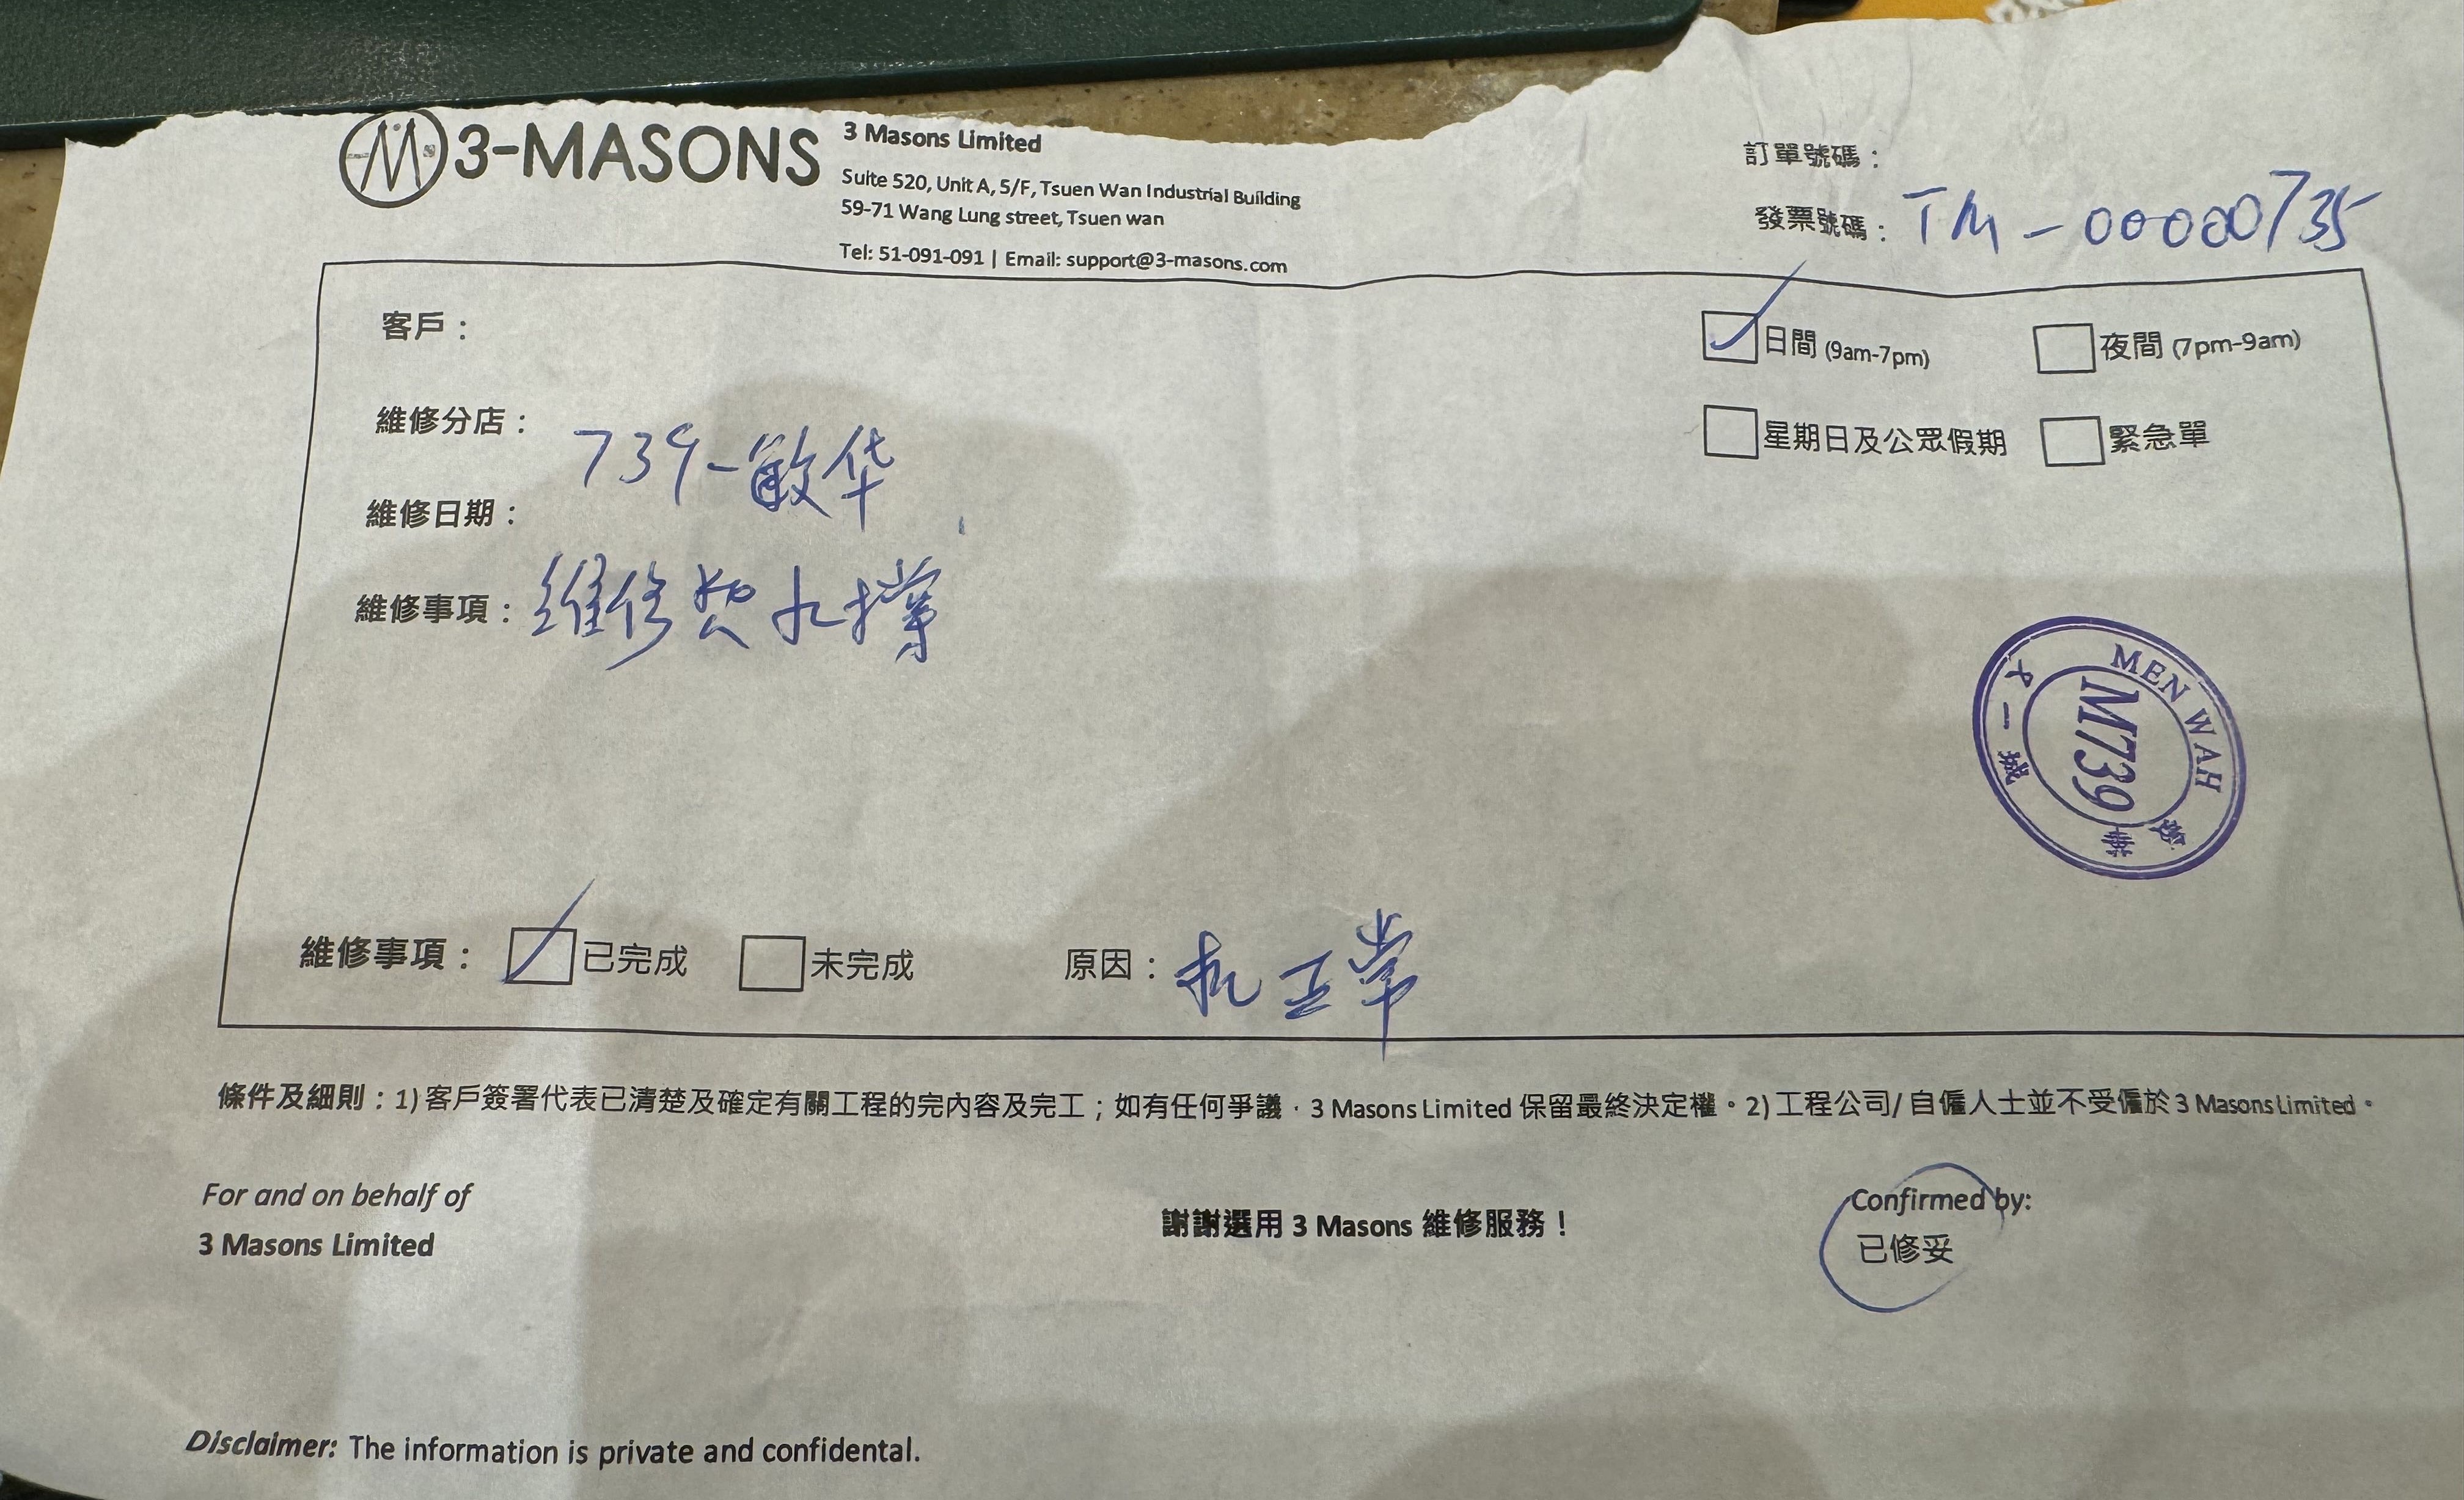 3-MASONS
3 Masons Limited
Suite 520, Unit A, 5/F, Tsuen Wan Industrial Building
59-71 Wang Lung street, Tsuen wan
Tel: 51-091-091 | Email: support@3-masons.com
訂單號碼：
發票號碼：TM-00000735
客戶：
維修分店：739-敏华
維修日期：
維修事項：維修熨水擋
日間 (9am-7pm)
夜間 (7pm-9am)
星期日及公眾假期
緊急單
MEN WAH
M739
又一城
敏華
維修事項：已完成 未完成 原因：正常
條件及細則：1) 客戶簽署代表已清楚及確定有關工程的完內容及完工；如有任何爭議，3 Masons Limited 保留最終決定權。2) 工程公司/ 自僱人士並不受僱於 3 Masons Limited。
For and on behalf of
3 Masons Limited
謝謝選用 3 Masons 維修服務！
Confirmed by:
已修妥
Disclaimer: The information is private and confidental.